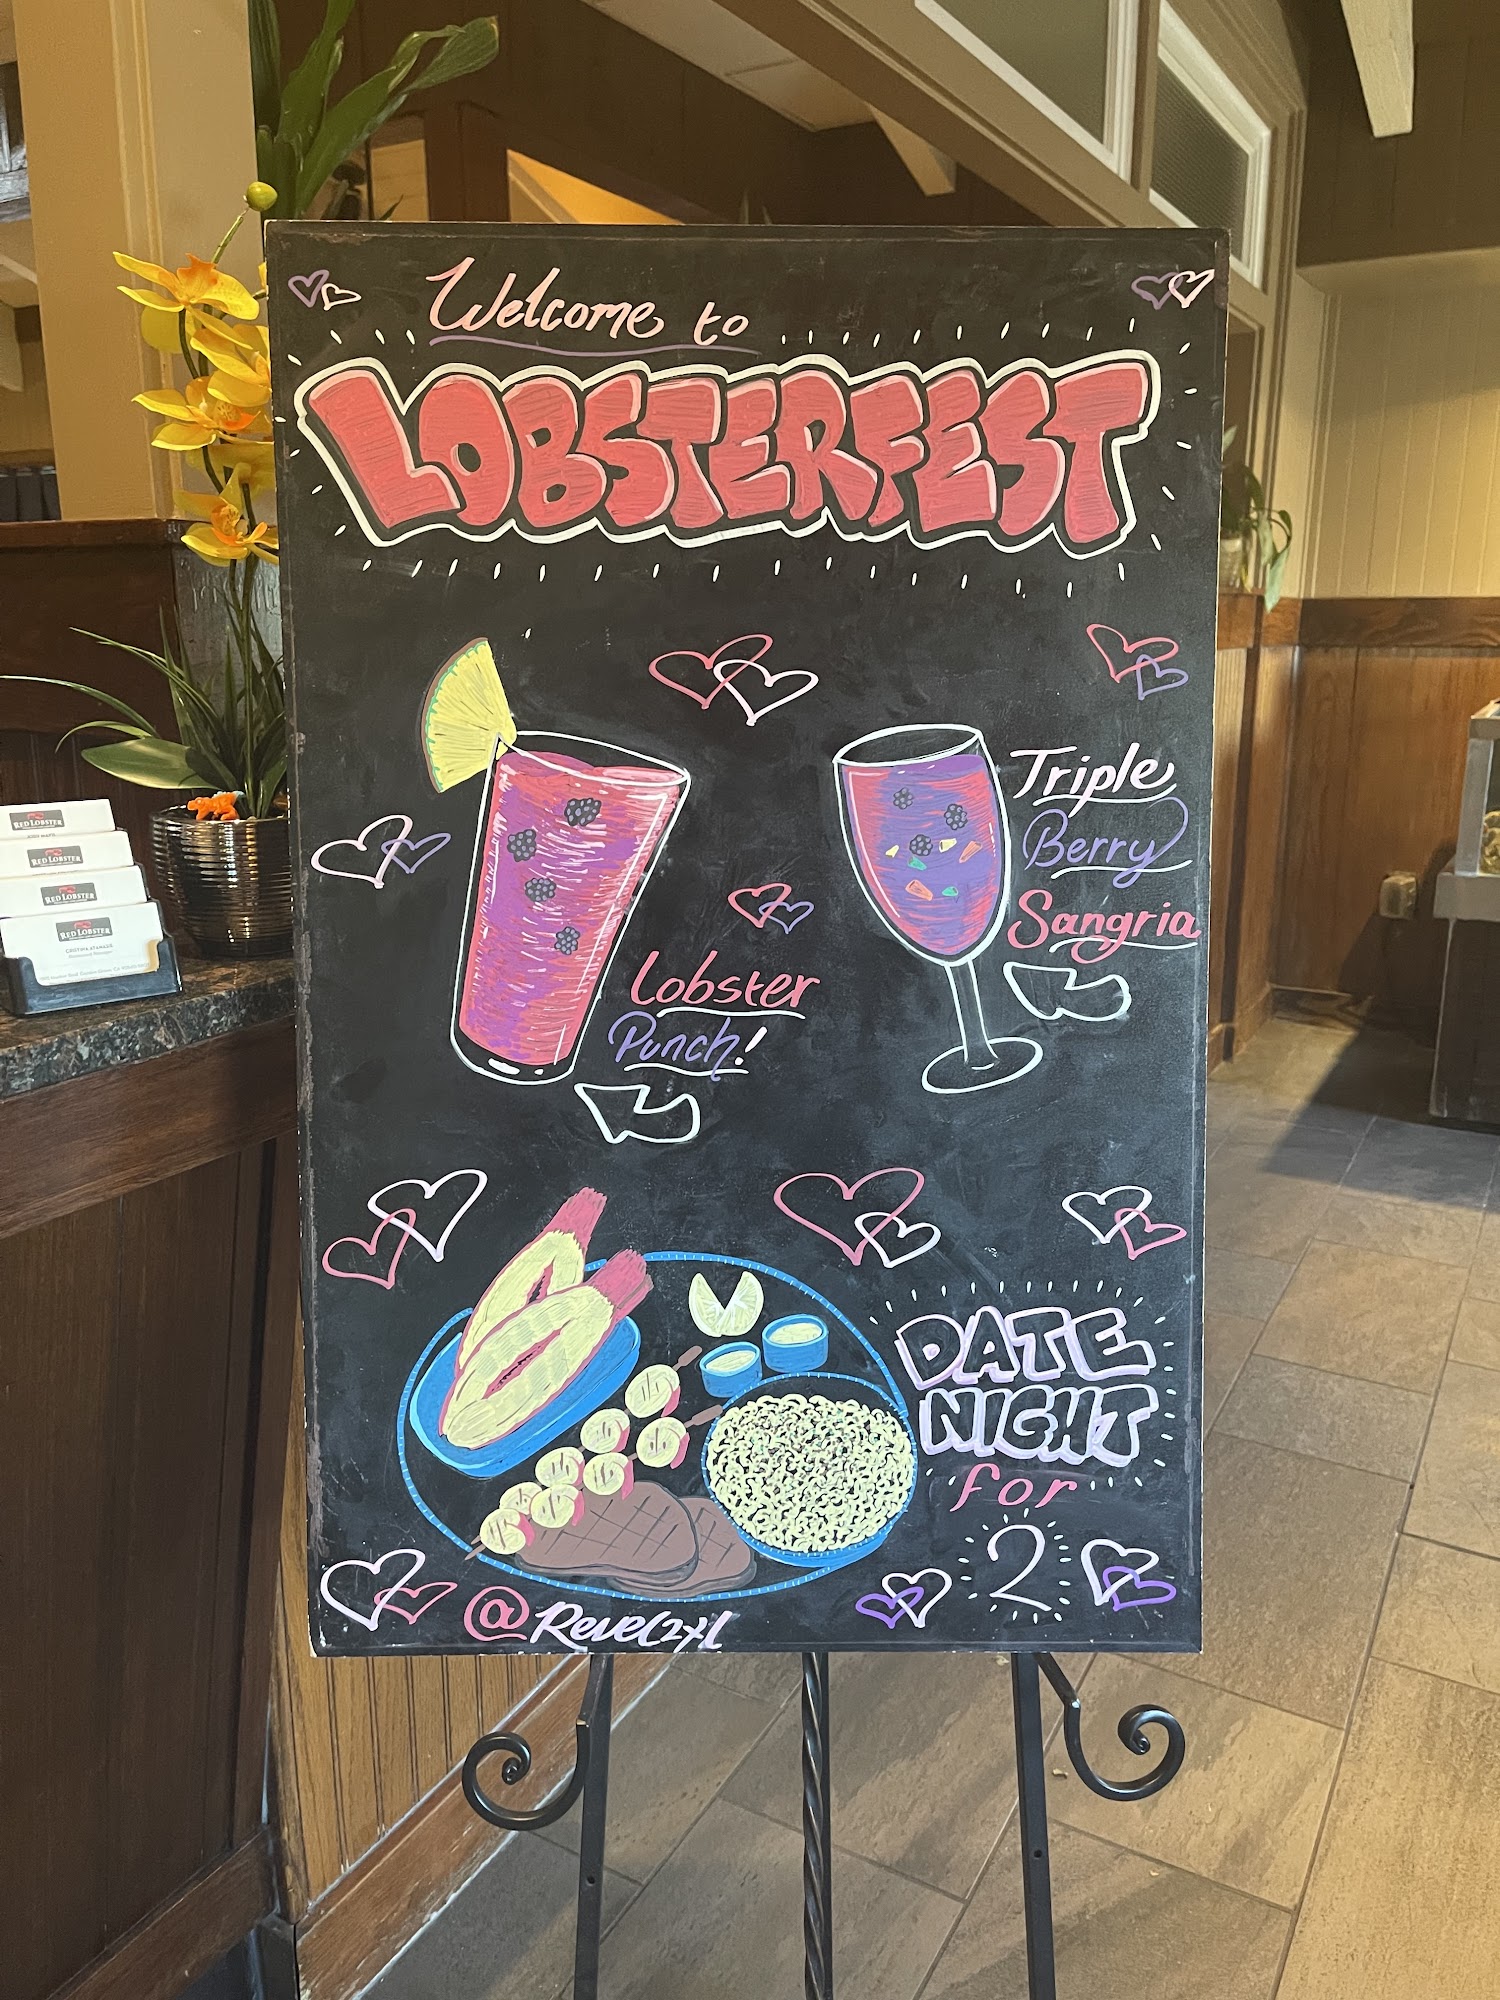 Welcome to
LOBSTERFEST
Triple
Berry
Sangria
Lobster
Punch!
DATE
NIGHT
for
2
RED LOBSTER
RED LOBSTER
RED LOBSTER
RED LOBSTER